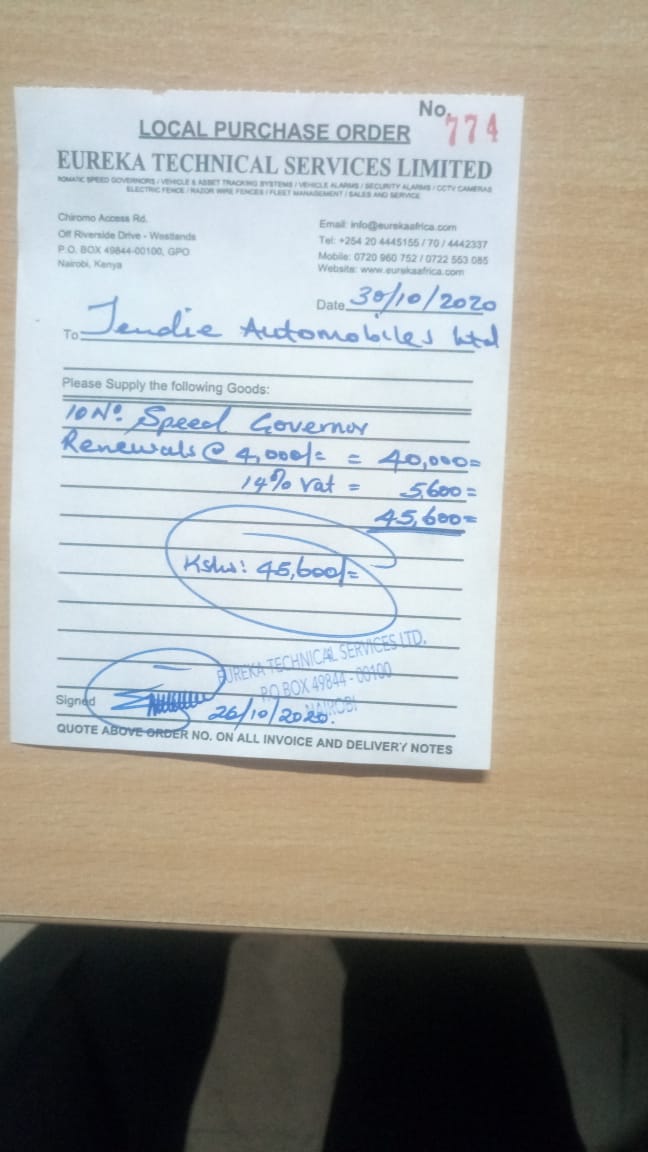 No. 774
LOCAL PURCHASE ORDER
EUREKA TECHNICAL SERVICES LIMITED
ROMATIC SPEED GOVERNORS / VEHICLE & ASSET TRACKING SYSTEMS / VEHICLE ALARMS / SECURITY ALARMS / CCTV CAMERAS
ELECTRIC FENCE / RAZOR WIRE FENCES / FLEET MANAGEMENT / SALES AND SERVICE
Chiromo Access Rd.
Off Riverside Drive - Westlands
P.O. BOX 49844-00100, GPO
Nairobi, Kenya
Email: info@eurekaafrica.com
Tel: +254 20 4445155 / 70 / 4442337
Mobile: 0720 960 752 / 0722 553 085
Website: www.eurekaafrica.com
Date 30/10/2020
To Jendie Automobiles Ltd
Please Supply the following Goods:
10 No. Speed Governor
Renewals @ 4,000/= = 40,000=
14% Vat = 5,600=
45,600=
Kshs: 45,600/=
EUREKA TECHNICAL SERVICES LTD.
P.O BOX 49844 - 00100
NAIROBI
Signed 26/10/2020.
QUOTE ABOVE ORDER NO. ON ALL INVOICE AND DELIVERY NOTES